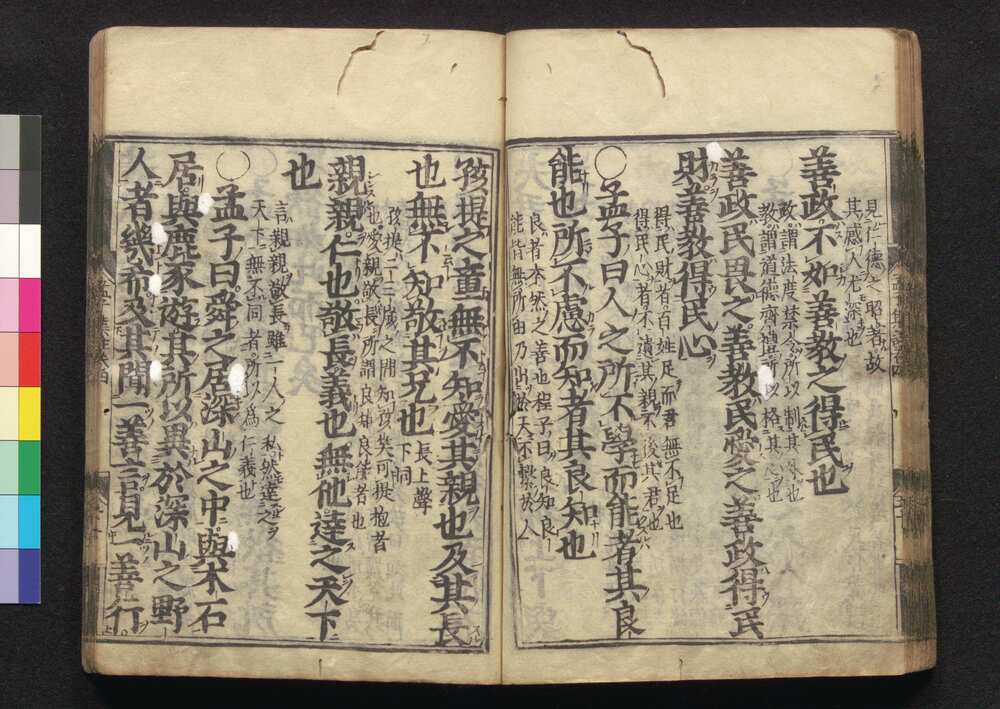 見仁德之昭著故
其感人尤深也
善政不如善教之得民也
政謂法度禁令所以制其外也
教謂道德齊禮所以格其心也
善政民畏之善教民愛之善政得民
財善教得民心
得民財者百姓足而君無不足也
得民心者不遺其親不後其君也
〇孟子曰人之所不學而能者其良
能也所不慮而知者其良知也
良者本然之善也程子曰良知良
能皆無所由乃出於天不繫於人
孩提之童無不知愛其親也及其長
也無不知敬其兄也
長上聲
下同
孩提二三歲之間知孩笑可提抱者
也愛親敬長所謂良知良能者也
親親仁也敬長義也無他達之天下
也
言親親敬長雖一人之私然達之
天下無不同者所以為仁義也
〇孟子曰舜之居深山之中與木石
居與鹿豕遊其所以異於深山之野
人者幾希及其聞一善言見一善行